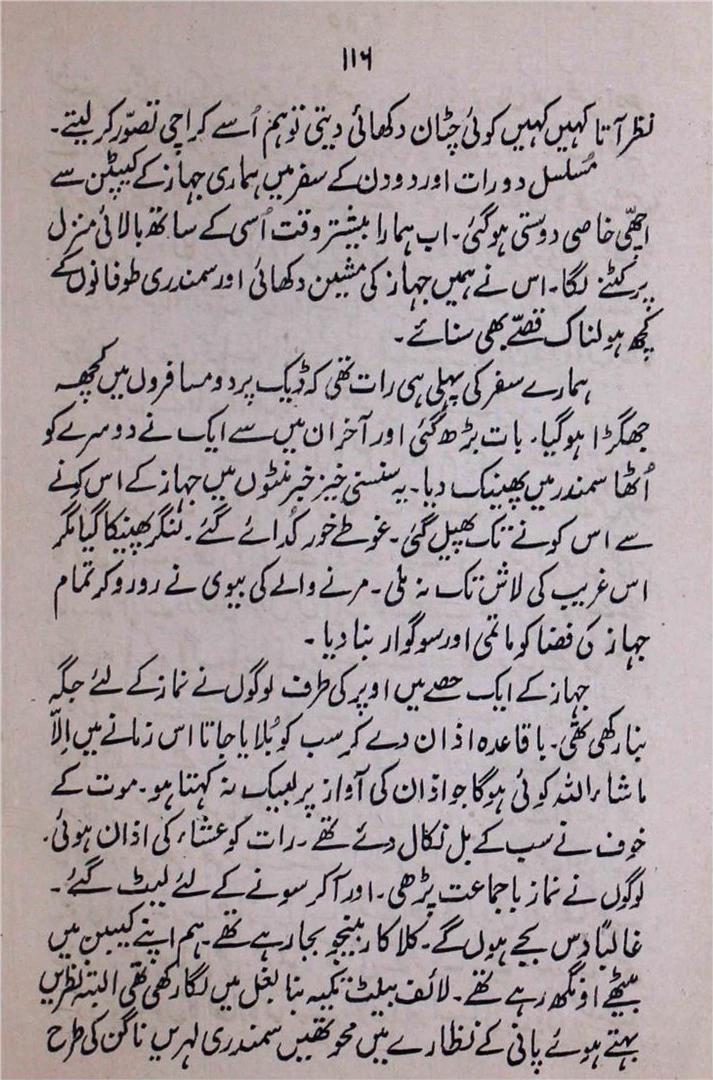 ۱۱۶
نظر آتا کہیں کہیں کوئی چٹان دکھائی دیتی تو ہم اُسے کراچی تصوّر کر لیتے۔
مُسلسل دو رات اور دو دن کے سفر میں ہماری جہاز کے کیپٹن سے
اچھّی خاصی دوستی ہو گئی۔ اب ہمارا بیشتر وقت اُسی کے ساتھ بالائی منزل
پر کٹنے لگا۔ اس نے ہمیں جہاز کی مشین دکھائی اور سمندری طوفانوں کے
کچھ ہولناک قصّے بھی سنائے۔
ہمارے سفر کی پہلی ہی رات تھی کہ ڈیک پر دو مسافروں میں کچھ
جھگڑا ہو گیا۔ بات بڑھ گئی اور آخر ان میں سے ایک نے دوسرے کو
اُٹھا سمندر میں پھینک دیا۔ یہ سنسنی خیز خبر منٹوں میں جہاز کے اس کونے
سے اس کونے تک پھیل گئی۔ غوطے خور کُدائے گئے۔ لنگر پھینکا گیا مگر
اس غریب کی لاش تک نہ ملی۔ مرنے والے کی بیوی نے رو رو کر تمام
جہاز کی فضا کو ماتمی اور سوگوار بنا دیا۔
جہاز کے ایک حصے میں اوپر کی طرف لوگوں نے نماز کے لئے جگہ
بنا رکھی تھی۔ باقاعدہ اذان دے کر سب کو بُلایا جاتا اس زمانے میں اِلّا
ماشاء اللہ کوئی ہوگا جو اذان کی آواز پر لبیک نہ کہتا ہو۔ موت کے
خوف نے سب کے بل نکال دئے تھے۔ رات کو عشاء کی اذان ہوئی۔
لوگوں نے نماز باجماعت پڑھی۔ اور آکر سونے کے لئے لیٹ گئے۔
غالباً دس بجے ہوں گے۔ کلاکار بینجو بجا رہے تھے۔ ہم اپنے کیبن میں
بیٹھے اونگھ رہے تھے۔ لائف بیلٹ تکیہ بنا بغل میں لگا رکھی تھی البتہ نظریں
بہتے ہوئے پانی کے نظارے میں محو تھیں سمندری لہریں ناگن کی طرح